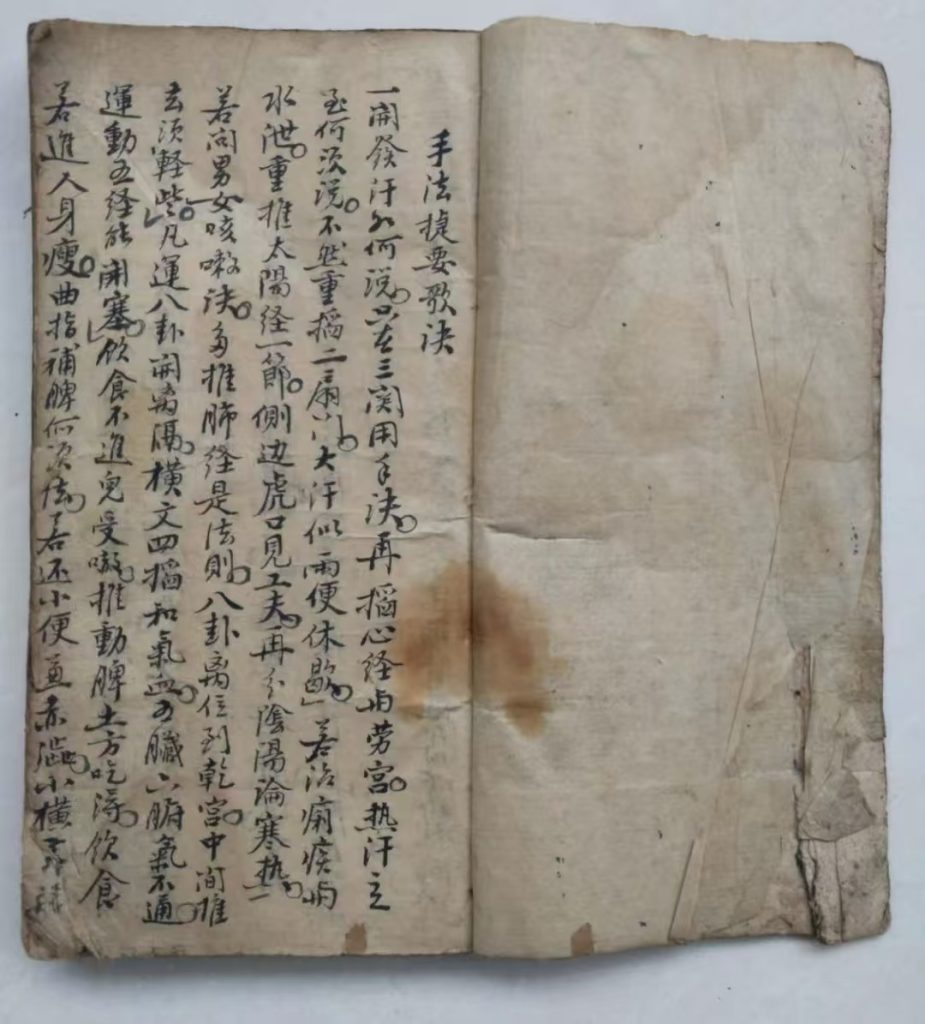 手法提要歌決
一開發汗如何說。只在三関用手決。再搯心経與劳宮。热汗立
至何須說。不然重搯二扇门。大汗似雨便休歇。」若治痢疾與
水泄。重推太陽経一節。側边虎口見工夫。再分陰陽論寒热。
若问男女咳嗽訣。多推肺経是法則。八卦离位到乾宮。中间推
去須軽些。凡運八卦開离隔。橫文四搯和氣血。五臟六腑氣不通。
運動五経能開塞。飲食不進兒受嗽。推動脾土方吃得。飲食
若進人身瘦。曲指補脾何須法。若还小便直赤澁。小橫